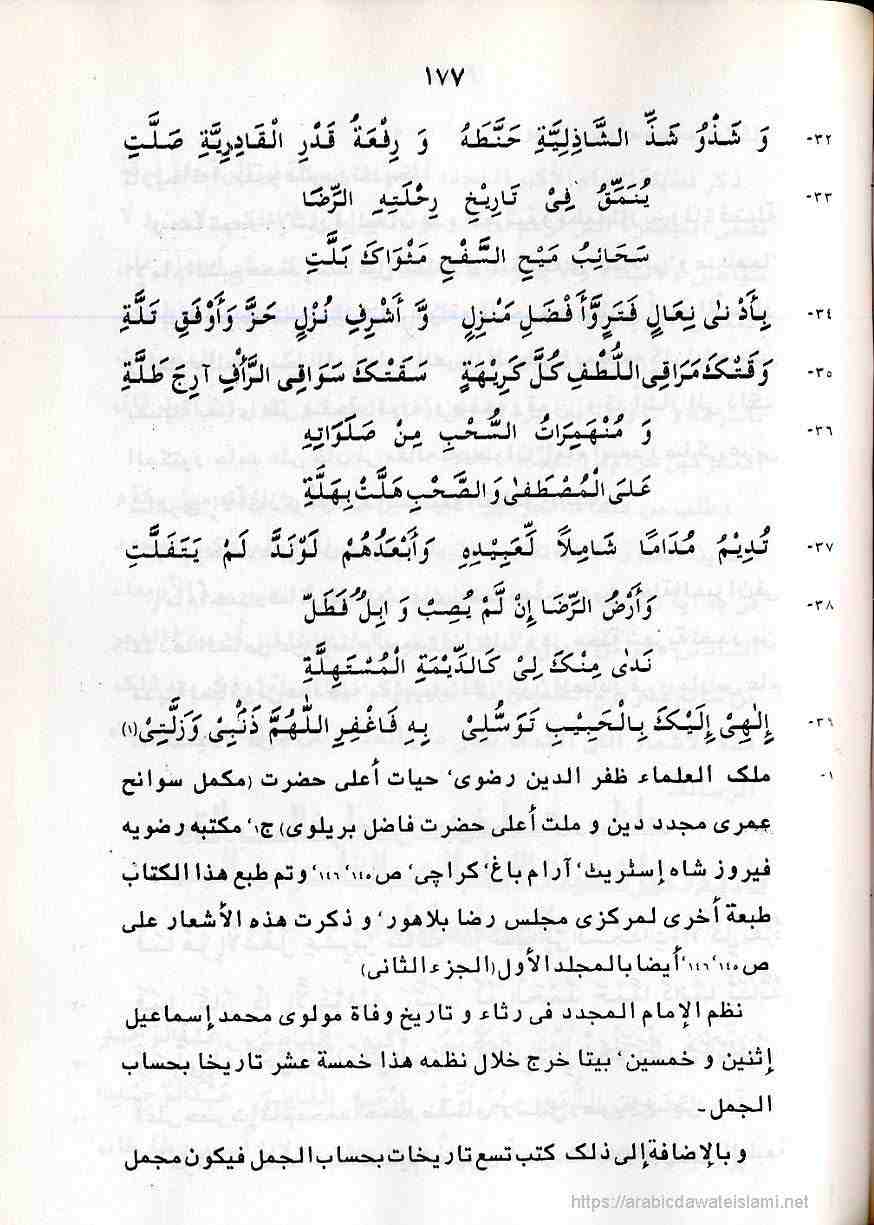 ١٧٧
٣٢- وَ شَذْوُ شَذِّ الشَّاذِلِيَّةِ حَنَّطَهُ وَ رِفْعَةُ قَدْرِ الْقَادِرِيَّةِ صَلَّتِ
٣٣- يُنَمِّقُ فِىْ تَارِيْخِ رِحْلَتِهِ الرِّضَا
سَحَائِبُ مَيْحِ السَّفْحِ مَثْوَاكَ بَلَّتِ
٣٤- بِأَدْنٰى نِعَالٍ فَتَرٍ وَّأَفْضَلِ مَنْزِلٍ وَّ أَشْرِفِ نُزْلٍ حَزَّ وَأَوْفَقِ تَلَّةِ
٣٥- وَقَتْكَ مَرَاقِى اللُّطْفِ كُلَّ كَرِيْهَةٍ سَقَتْكَ سَوَاقِى الرَّأْفِ آرِجَ طَلَّةِ
٣٦- وَ مُنْهَمِرَاتُ السُّحْبِ مِنْ صَلَوَاتِهِ
عَلَى الْمُصْطَفٰى وَالصَّحْبِ هَلَّتْ بِهَلَّةِ
٣٧- تُدِيْمُ مُدَامًا شَامِلاً لِّعَبِيْدِهِ وَأَبْعَدُهُمْ لَوْنَدَّ لَمْ يَتَفَلَّتِ
٣٨- وَأَرْضُ الرِّضَا إِنْ لَّمْ يُصِبْ وَ ابِلٌ فَطَلّ
نَدٰى مِنْكَ لِىْ كَالدِّيْمَةِ الْمُسْتَهِلَّةِ
٣٩- إِلٰهِىْ إِلَيْكَ بِالْحَبِيْبِ تَوَسُّلِىْ بِهِ فَاغْفِرِ اللّٰهُمَّ ذَنْبِىْ وَزَلَّتِىْ (١)
١- ملک العلماء ظفر الدین رضوی، حیات أعلی حضرت (مکمل سوانح
عمری مجدد دین و ملت أعلی حضرت فاضل بریلوی) ج١، مکتبه رضویه
فیروز شاه إسٹریٹ، آرام باغ، کراچی، ص١٤٥، ١٤٦، وتم طبع هذا الکتاب
طبعة أخری لمرکزی مجلس رضا بلاهور، و ذکرت هذه الأشعار علی
ص١٤٥، ١٤٦، أیضا بالمجلد الأول (الجزء الثانی)
نظم الإمام المجدد فی رثاء و تاریخ وفاة مولوی محمد إسماعیل
إثنین و خمسین، بیتا خرج خلال نظمه هذا خمسة عشر تاریخا بحساب
الجمل۔
و بالإضافة إلی ذلک کتب تسع تاریخات بحساب الجمل فیکون مجمل
https://arabicdawateislami.net